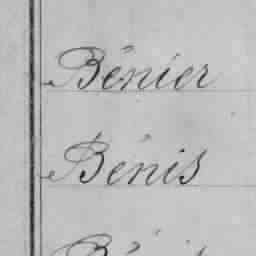 Bénier
Bénis